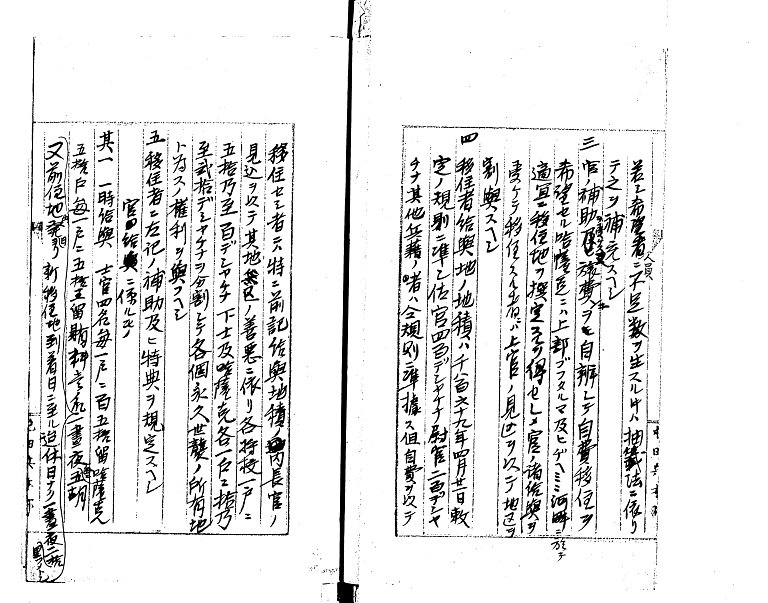 若シ希望者人員ニ不足数ヲ生スル時ハ抽籤法ニ依リ
テ之ヲ補充スヘシ
三 官ノ補助及旅費ヲモ自辨シテ自費移住ヲ
希望セル哈薩克ニハ上部ブフタルマ及ヒデヘーミ河畔ニ於テ
適宜ニ移住地ヲ撰定スルヲ得セシメ官ノ諸給與ヲ
受ケテ移住スル者ハ上官ノ見込ヲ以テ地区ヲ
割與スヘシ
四 移住者給與地ノ地積ハ千八百六十九年四月廿一日敕
定ノ規則ニ準シ佐官四百デシャチナ尉官二百デシャ
チナ其他兵籍ノ者ハ令規則ニ準據ス但自費ヲ以テ
移住セシ者ニハ特ニ前記給與地積ノ内長官ノ
見込ヲ以テ其地ノ善悪ニ依リ各将校一戸ニ
五拾乃至百デシャチナ下士及哈薩克各一戸ニ拾乃
至貳拾デシャチナヲ分割シテ各個永久世襲ノ所有地
ト為スノ權利ヲ與スヘシ
五 移住者ニ左記ノ補助及ヒ特典ヲ規定スヘシ
官給與ニ係ルモノ
其一、一時給與 士官四名毎一戸ニ百五拾留哈薩克
五拾戸毎一戸ニ五拾五留賄料トシテ一晝夜五
又前住地発ヨリ新移住地到着日ニ至ル迄休日ナク一晝夜ニ